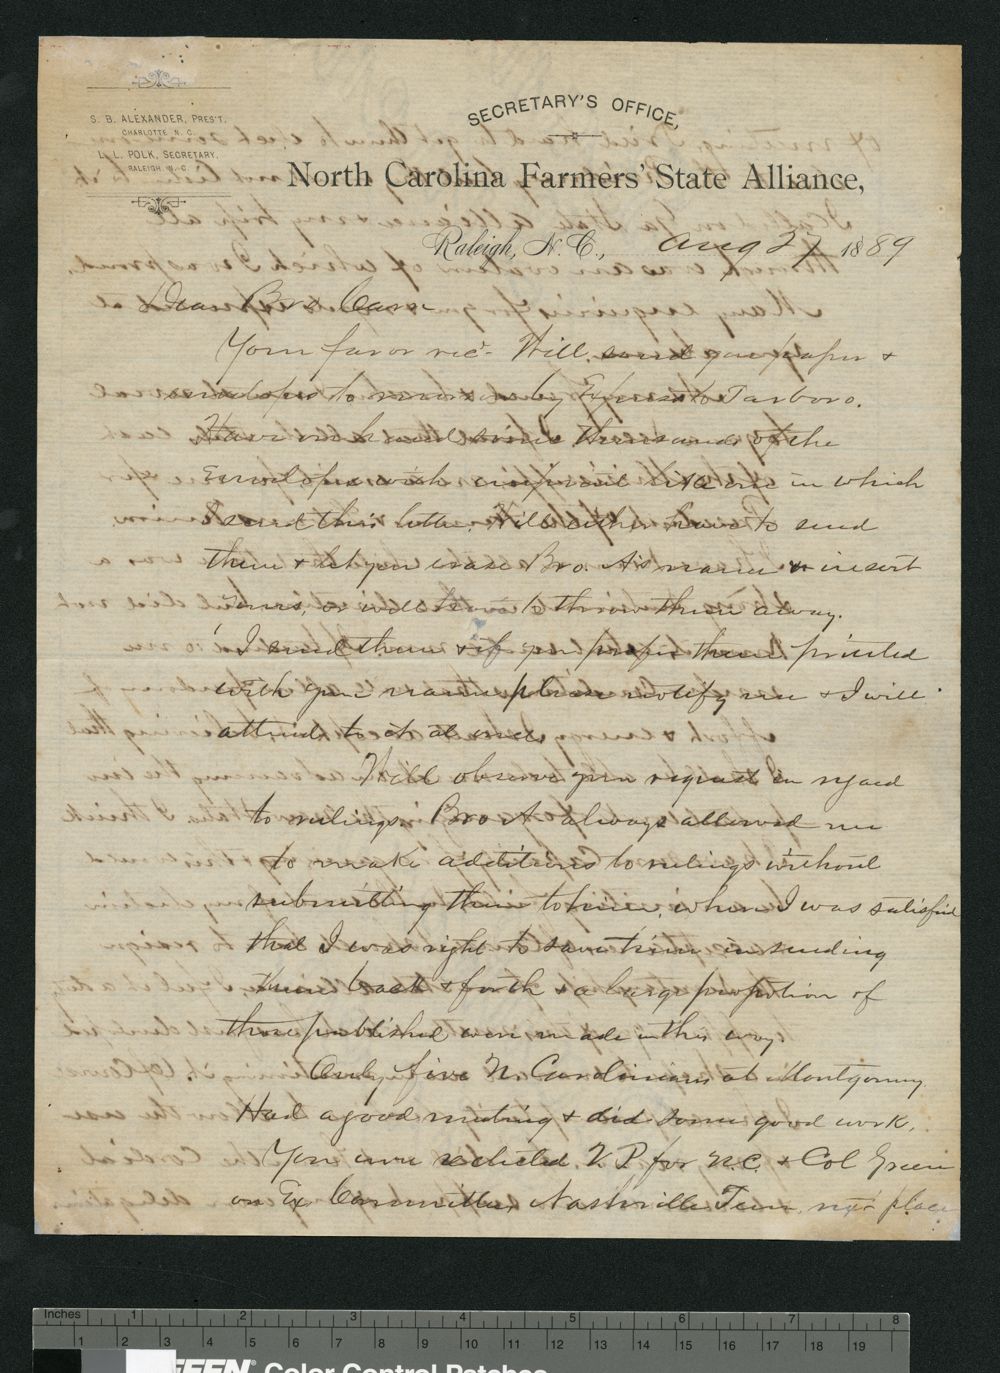 S. B. ALEXANDER, PRES'T.
CHARLOTTE, N. C.
L. L. POLK, SECRETARY,
RALEIGH, N. C.
SECRETARY'S OFFICE,
North Carolina Farmers' State Alliance,
Raleigh, N. C., Aug 27 1889
Dear Bro Carr
Your favor rec'd. Will send you paper &
envelopes to by Express to Tarboro.
Have on hand some thousands of the
Envelopes with imprint like one in which
I send this letter. Will either have to send
them & let you erase Bro. A's name & insert
yours, or will have to throw them away.
I send them & if you prefer them printed
with your name please notify me & I will
attend to it at once.
Will observe your request in regard
to rulings. Bro A always allowed me
to make additions to rulings without
submitting them to him, when I was satisfied
that I was right to save time in sending
them back & forth & a large proportion of
those published were made in this way.
Only five N. Carolinians at Montgomery.
Had a good meeting & did some good work.
You were elected V. P. for N.C. & Col Green
on Ex Committee, Nashville Tenn. next place
Inches 1 2 3 4 5 6 7 8
1 2 3 4 5 6 7 8 9 10 11 12 13 14 15 16 17 18 19
Color Control Patches